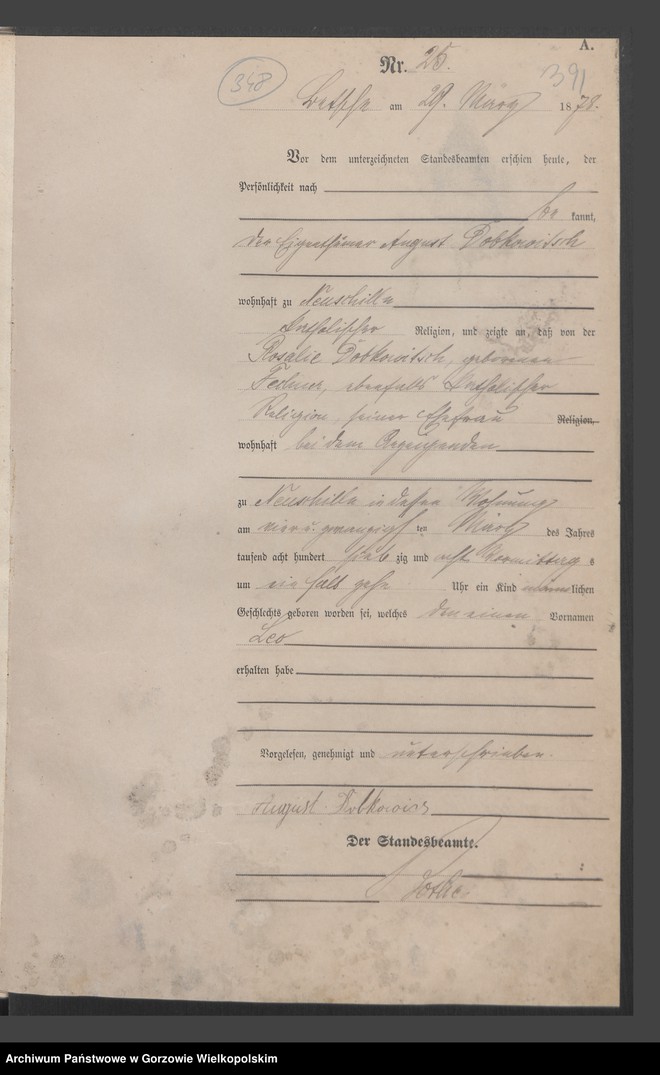 A.
Nr. 25.
348
391
Betsche am 29. März 1878.
Vor dem unterzeichneten Standesbeamten erschien heute, der
Persönlichkeit nach
be kannt,
der Eigenthümer August Dobkowitsch
wohnhaft zu Neuschilln
katholischer Religion, und zeigte an, daß von der
Rosalie Dobkowitsch, geborenen
Fechner, ebenfalls katholischer
Religion, seiner Ehefrau Religion,
wohnhaft bei dem Anzeigenden
zu Neuschilln in dessen Wohnung
am vier u. zwanzigsten März des Jahres
tausend acht hundert sieb zig und acht Vormittags
um ein halb zehn Uhr ein Kind männlichen
Geschlechts geboren worden sei, welches den einen Vornamen
Leo
erhalten habe
Vorgelesen, genehmigt und unterschrieben.
August Dobkowicz
Der Standesbeamte.
Archiwum Państwowe w Gorzowie Wielkopolskim